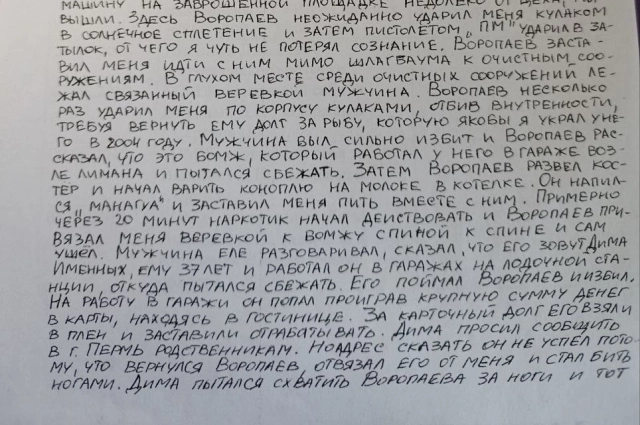 МАШИНУ НА ЗАБРОШЕННОЙ ПЛОЩАДКЕ НЕДАЛЕКО ОТ ЦЕХА, МЫ
ВЫШЛИ. ЗДЕСЬ ВОРОПАЕВ НЕОЖИДАННО УДАРИЛ МЕНЯ КУЛАКОМ
В СОЛНЕЧНОЕ СПЛЕТЕНИЕ И ЗАТЕМ ПИСТОЛЕТОМ „ПМ" УДАРИЛ В ЗА-
ТЫЛОК, ОТ ЧЕГО Я ЧУТЬ НЕ ПОТЕРЯЛ СОЗНАНИЕ. ВОРОПАЕВ ЗАСТА-
ВИЛ МЕНЯ ИДТИ С НИМ МИМО ШЛАГБАУМА К ОЧИСТНЫМ СОО-
РУЖЕНИЯМ. В ГЛУХОМ МЕСТЕ СРЕДИ ОЧИСТНЫХ СООРУЖЕНИЙ ЛЕ-
ЖАЛ СВЯЗАННЫЙ ВЕРЕВКОЙ МУЖЧИНА. ВОРОПАЕВ НЕСКОЛЬКО
РАЗ УДАРИЛ МЕНЯ ПО КОРПУСУ КУЛАКАМИ, ОТБИВ ВНУТРЕННОСТИ,
ТРЕБУЯ ВЕРНУТЬ ЕМУ ДОЛГ ЗА РЫБУ, КОТОРУЮ ЯКОБЫ Я УКРАЛ У НЕ-
ГО В 2004 ГОДУ. МУЖЧИНА БЫЛ СИЛЬНО ИЗБИТ И ВОРОПАЕВ РАС-
СКАЗАЛ, ЧТО ЭТО БОМЖ, КОТОРЫЙ РАБОТАЛ У НЕГО В ГАРАЖЕ ВОЗ-
ЛЕ ЛИМАНА И ПЫТАЛСЯ СБЕЖАТЬ. ЗАТЕМ ВОРОПАЕВ РАЗВЕЛ КОС-
ТЕР И НАЧАЛ ВАРИТЬ КОНОПЛЮ НА МОЛОКЕ В КОТЕЛКЕ. ОН НАПИЛ-
СЯ „МАНАГУА" И ЗАСТАВИЛ МЕНЯ ПИТЬ ВМЕСТЕ С НИМ. ПРИМЕРНО
ЧЕРЕЗ 20 МИНУТ НАРКОТИК НАЧАЛ ДЕЙСТВОВАТЬ И ВОРОПАЕВ ПРИ-
ВЯЗАЛ МЕНЯ ВЕРЕВКОЙ К БОМЖУ СПИНОЙ К СПИНЕ И САМ
УШЕЛ. МУЖЧИНА ЕЛЕ РАЗГОВАРИВАЛ, СКАЗАЛ, ЧТО ЕГО ЗОВУТ ДИМА
ИМЕННЫХ, ЕМУ 37 ЛЕТ И РАБОТАЛ ОН В ГАРАЖАХ НА ЛОДОЧНОЙ СТА-
НЦИИ, ОТКУДА ПЫТАЛСЯ СБЕЖАТЬ. ЕГО ПОЙМАЛ ВОРОПАЕВ И ИЗБИЛ.
НА РАБОТУ В ГАРАЖИ ОН ПОПАЛ ПРОИГРАВ КРУПНУЮ СУММУ ДЕНЕГ
В КАРТЫ, НАХОДЯСЬ В ГОСТИНИЦЕ. ЗА КАРТОЧНЫЙ ДОЛГ ЕГО ВЗЯЛИ
В ПЛЕН И ЗАСТАВИЛИ ОТРАБАТЫВАТЬ. ДИМА ПРОСИЛ СООБЩИТЬ
В Г. ПЕРМЬ РОДСТВЕННИКАМ. НО АДРЕС СКАЗАТЬ ОН НЕ УСПЕЛ ПОТО-
МУ, ЧТО ВЕРНУЛСЯ ВОРОПАЕВ, ОТВЯЗАЛ ЕГО ОТ МЕНЯ И СТАЛ БИТЬ
НОГАМИ. ДИМА ПЫТАЛСЯ СХВАТИТЬ ВОРОПАЕВА ЗА НОГИ И ТОТ